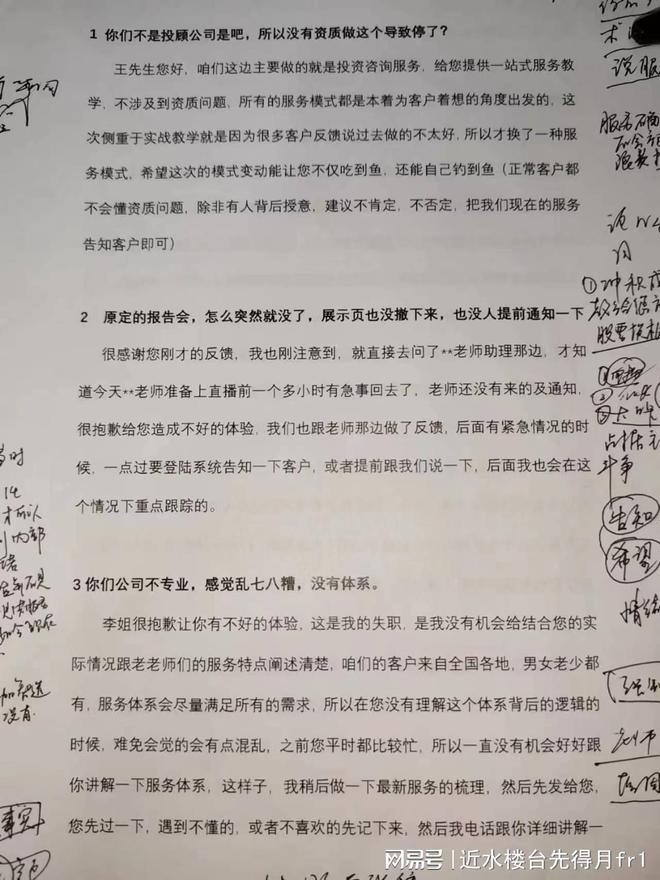 1 你们不是投顾公司是吧，所以没有资质做这个导致停了？
王先生您好，咱们这边主要做的就是投资咨询服务，给您提供一站式服务教
学，不涉及到资质问题，所有的服务模式都是本着为客户着想的角度出发的，这
次侧重于实战教学就是因为很多客户反馈说过去做的不太好，所以才换了一种服
务模式，希望这次的模式变动能让您不仅吃到鱼，还能自己钓到鱼（正常客户都
不会懂资质问题，除非有人背后授意，建议不肯定，不否定，把我们现在的服务
告知客户即可）
2 原定的报告会，怎么突然就没了，展示页也没撤下来，也没人提前通知一下
很感谢您刚才的反馈，我也刚注意到，就直接去问了**老师助理那边，才知
道今天**老师准备上直播前一个多小时有急事回去了，老师还没有来的及通知，
很抱歉给您造成不好的体验，我们也跟老师那边做了反馈，后面有紧急情况的时
候，一点过要登陆系统告知一下客户，或者提前跟我们说一下，后面我也会在这
个情况下重点跟踪的。
3 你们公司不专业，感觉乱七八糟，没有体系。
李姐很抱歉让你有不好的体验，这是我的失职，是我没有机会给结合您的实
际情况跟老老师们的服务特点阐述清楚，咱们的客户来自全国各地，男女老少都
有，服务体系会尽量满足所有的需求，所以在您没有理解这个体系背后的逻辑的
时候，难免会觉的会有点混乱，之前您平时都比较忙，所以一直没有机会好好跟
你讲解一下服务体系，这样子，我稍后做一下最新服务的梳理，然后先发给您，
您先过一下，遇到不懂的，或者不喜欢的先记下来，然后我电话跟你详细讲解一
说服
服务确
告知
希望
情绪
网易号 | 近水楼台先得月fr1